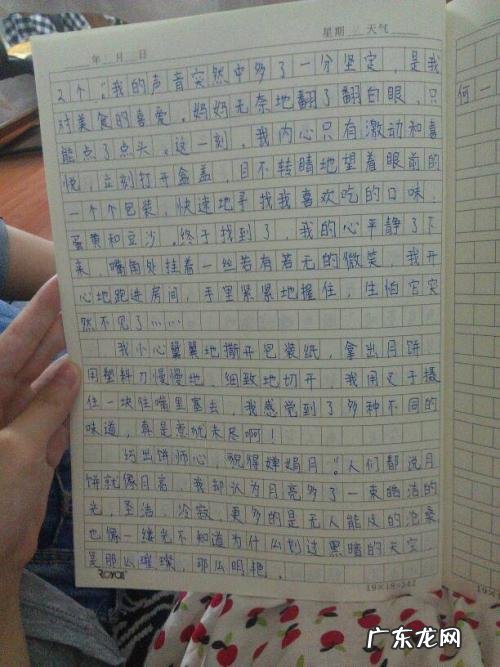 年 月 日 星期 天气
2个。"我的声音突然中多了一分坚定，是我
对美食的喜爱。妈妈无奈地翻了翻白眼，只
能点了点头。这一刻，我内心只有激动和喜
悦，立刻打开盒盖，目不转睛地望着眼前的
一个个包装，快速地寻找我喜欢吃的口味，
蛋黄和豆沙。终于找到了，我的心平静了下
来，嘴角处挂着一丝若有若无的微笑，我开
心地跑进房间，手里紧紧地握住，生怕它突
然不见了……
我小心翼翼地撕开包装纸，拿出月饼，
用塑料刀慢慢地、细致地切开，我用叉子摄
住一块往嘴里塞去，我感觉到了多种不同的
味道，真是意犹未尽啊！
巧出饼师心，貌得婵娟月"。人们都说月
饼就像月亮，我却认为月亮多了一束皓洁的
光，圣洁、冷寂，更多的是无人能及的沧桑，
也像一缕光不知道为什么划过黑暗的天空，
是那么璀璨，那么明艳。
何一
ROYCE
19×18=342
广东龙网